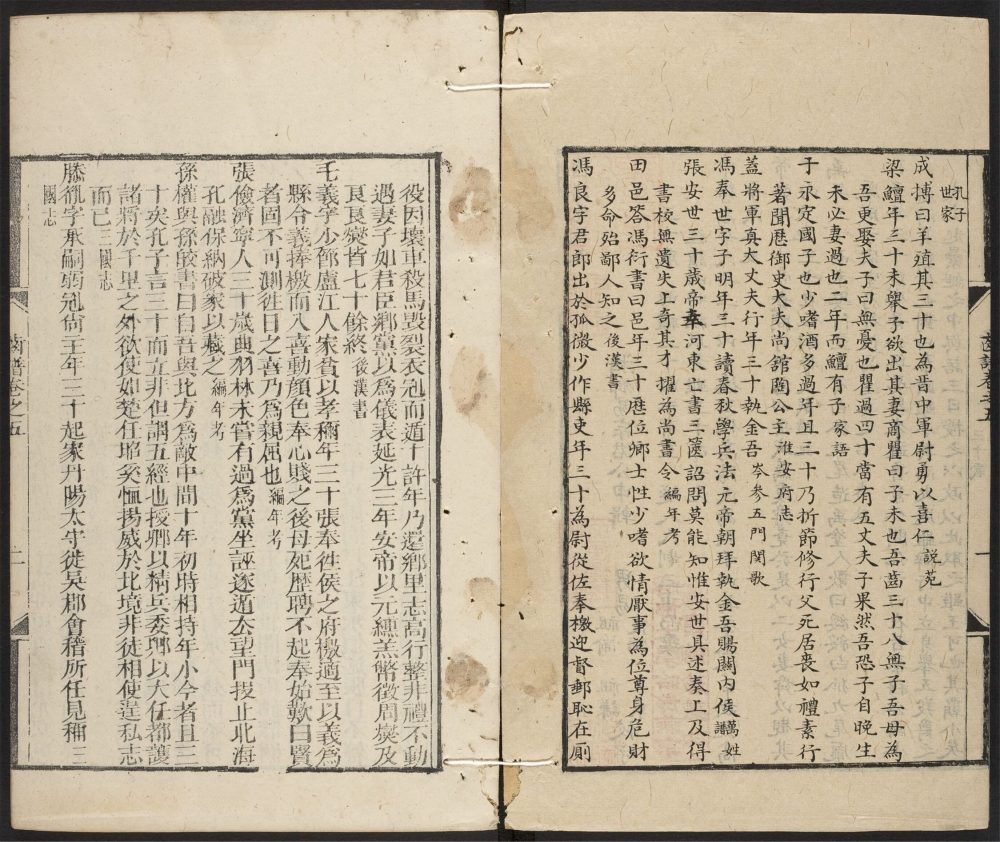 孔子
世家
成摶曰羊殖其三十也為晋中軍尉勇以喜仁說苑
梁鱣年三十未舉子欲出其妻商瞿曰子未也吾齒三十八無子吾母為
吾更娶夫子曰無憂也瞿過四十當有五丈夫子果然吾恐子自晚生
未必妻過也二年而鱣有子家語
于永定國子也少嗜酒多過年且三十乃折節修行父死居喪如禮素行
著聞歷御史大夫尚館陶公主淮安府志
蓋將軍真大丈夫行年三十執金吾岑參五門関歌
馮奉世字子明年三十讀春秋學兵法元帝朝拜執金吾賜關內侯萬姓譜
張安世三十歲帝幸河東亡書三篋詔問莫能知惟安世具述奏上及得
書校無遺失上奇其才擢為尚書令編年考
田邑答馮衍書曰邑年三十歷位鄉士性少嗜欲情厭事為位尊身危財
多命殆鄙人知之後漢書
馮良字君郎出於孤微少作縣吏年三十為尉從佐奉檄迎督郵恥在厠
役因壞車殺馬毀裂衣冠而遁十許年乃還鄉里志高行整非禮不動
遇妻子如君臣鄉黨以為儀表延光三年安帝以元纁羔幣徵周燮及
良良燮皆七十餘終後漢書
毛義字少節廬江人家貧以孝稱年三十張奉徃侯之府檄適至以義為
縣令義捧檄而入喜動顏色奉心賤之後母死歷聘不起奉始歎曰賢
者固不可測徃日之喜乃為親屈也編年考
張儉濟寧人三十歲典羽林未嘗有過為黨坐誣逐遁去望門投止北海
孔融保納破家以藏之編年考
孫權與孫皎書曰自吾與北方為敵中間十年初時相持年小今者且三
十矣孔子言三十而立非但謂五經也授卿以精兵委卿以大任都護
諸將於千里之外欲使如楚任昭奚恤揚威於北境非徒相使逞私志
而已三國志
滕胤字承嗣弱冠尙主年三十起家丹陽太守徙吳郡會稽所任見稱三
國志
齒譜卷之五
二